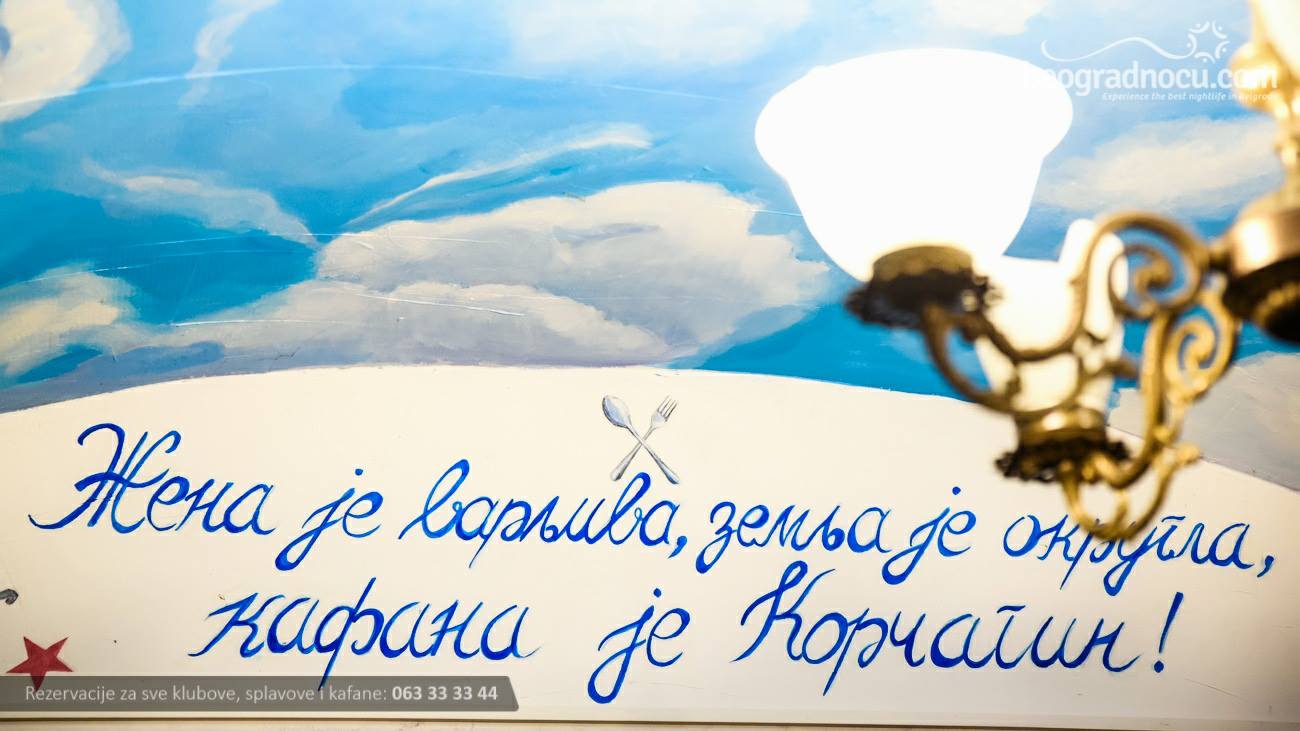 beogradnocu.com
Experience the best nightlife in Belgrade
Жена је варљива, земља је округла,
кафана је Корчагин!
Rezervacije za sve klubove, splavove i kafane: 063 33 33 44